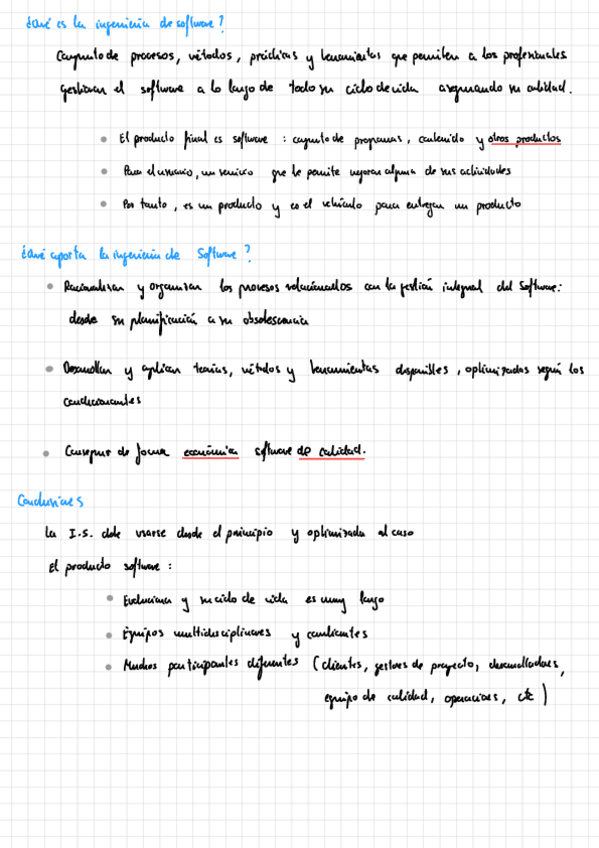 ¿Qué es la ingeniería de software?
Conjunto de procesos, métodos, prácticas y herramientas que permiten a los profesionales
gestionar el software a lo largo de todo su ciclo de vida asegurando su calidad.
El producto final es software : conjunto de programas, contenido y otros productos
Para el usuario, un servicio que le permite mejorar alguna de sus actividades
Por tanto, es un producto y es el vehículo para entregar un producto
¿Qué aporta la ingeniería de Software?
Racionalizar y organizar los procesos relacionados con la gestión integral del Software:
desde su planificación a su obsolescencia
Desarrollar y aplicar teorías, métodos y herramientas disponibles, optimizados según los
condicionantes
Conseguir de forma económica software de calidad.
Conclusiones
La I.S. debe usarse desde el principio y optimizada al caso
El producto software :
Evoluciona y su ciclo de vida es muy largo
Equipos multidisciplinares y cambiantes
Muchos participantes diferentes (clientes, gestores de proyecto, desarrolladores,
equipo de calidad, operaciones, etc)